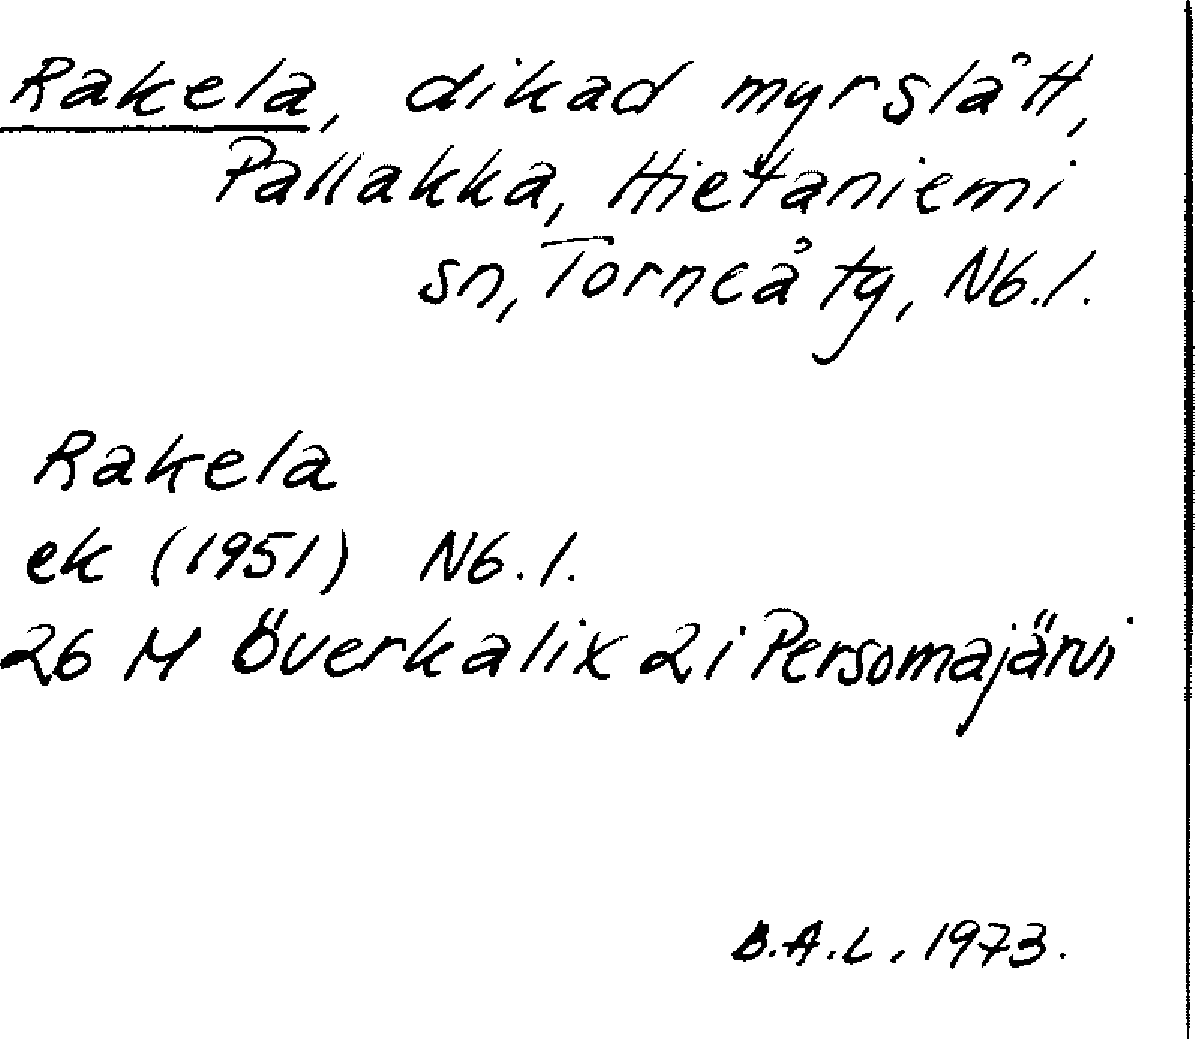 Rakela, dikad myrslått,
Pallakka, Hietaniemi
sn, Torneå tg, Nb.l.
Rakela
ek (1951) Nb.l.
26 M Överkalix 2i Persomajärvi
B.A.L. 1973.